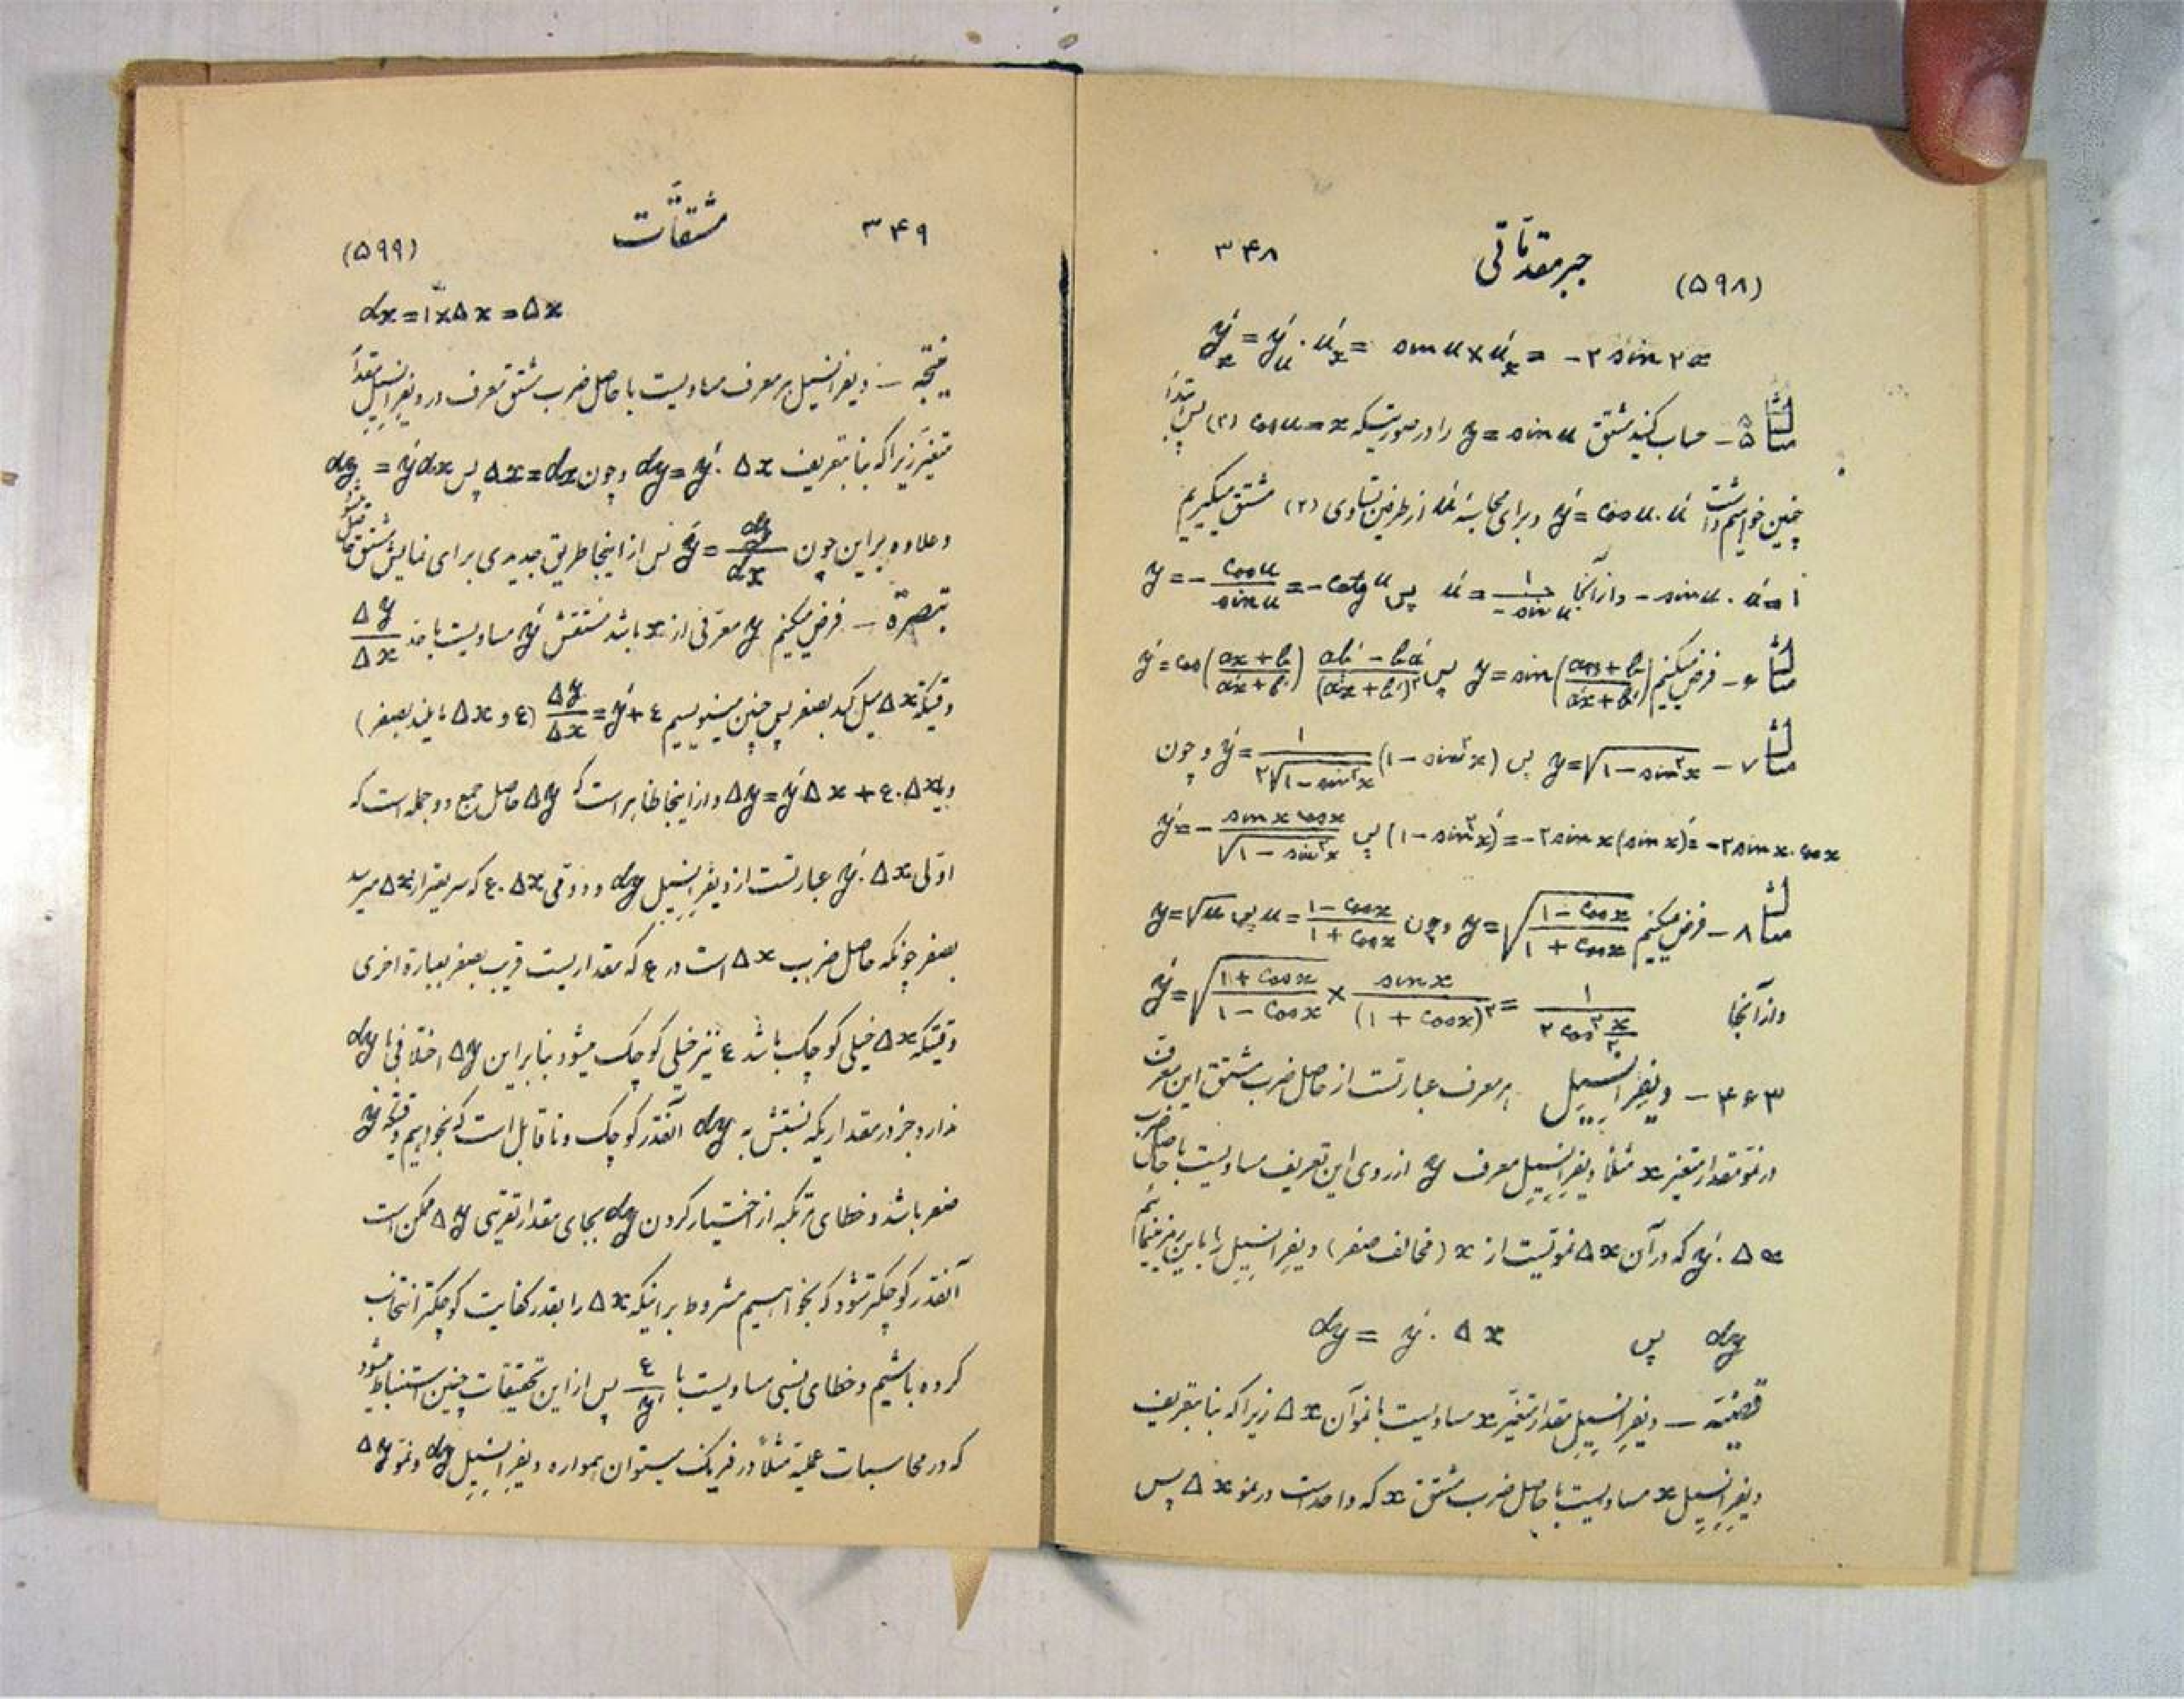 (۵۹۸) جبر مقدّماتی ۳۴۸
y′x = y′u . u′x = sin u × u′x = -۲ sin ۲x
مثال ۵ – حساب کنید مشتق y = sin u را در صورتیکه cos u = x (۲) پس ابتداً
چنین خواهیم داشت y′ = cos u . u′ و برای محاسبهٔ u′ از طرفین تساوی (۲) مشتق میگیریم
- sin u . u′ = ۱ و از آنجا u′ = ۱/(- sin u) پس y′ = - cos u/sin u = - cotg u
مثال ۶ – فرض میکنیم y = sin((ax + b)/(a′x + b′)) پس y′ = cos((ax + b)/(a′x + b′)) (ab′ - ba′)/(a′x + b′)²
مثال ۷ – y = √(۱ - sin²x) پس y′ = ۱/(۲√(۱ - sin²x)) (۱ - sin²x)′ و چون
(۱ - sin²x)′ = -۲ sin x (sin x)′ = -۲ sin x . cos x پس y′ = - sin x cos x/√(۱ - sin²x)
مثال ۸ – فرض میکنیم y = √((۱ - cos x)/(۱ + cos x)) و چون u = (۱ - cos x)/(۱ + cos x) پس y = √u
و از آنجا y′ = √((۱ + cos x)/(۱ - cos x)) × sin x/(۱ + cos x)² = ۱/(۲ cos² x/۲)
۴۶۳ – دیفرانسیل هر معرف عبارتست از حاصل ضرب مشتق این معرف
در نمو مقدار متغیر x مثلاً دیفرانسیل معرف y از روی این تعریف مساویست با حاصل ضرب
y′ . Δx که در آن Δx نمویست از x (مخالف صفر) دیفرانسیل را باین رمز مینمائیم
dy پس dy = y′ . Δx
قضیّه – دیفرانسیل مقدار متغیّر x مساویست با نمو آن Δx زیرا که بنا بتعریف
دیفرانسیل x مساویست با حاصل ضرب مشتق x که واحد است در نمو Δx پس
۳۴۹ مشتقّات (۵۹۹)
dx = ۱ × Δx = Δx
نتیجه – دیفرانسیل هر معرف مساویست با حاصل ضرب مشتق معرف در دیفرانسیل مقدار
متغیّر زیرا که بنا بتعریف dy = y′ . Δx و چون Δx = dx پس dy = y′dx
و علاوه بر این چون y′ = dy/dx پس از اینجا طریق جدیدی برای نمایش مشتق حاصل میشود
تبصره – فرض میکنیم y معرّفی از x باشد مشتقش y′ مساویست با حد Δy/Δx
وقتیکه Δx میل کند بصفر پس چنین مینویسیم Δy/Δx = y′ + ε (ε و Δx مایلند بصفر)
و یا Δy = y′Δx + ε.Δx و از اینجا ظاهر است که Δy حاصل جمع دو جمله است که
اوّلی y′ . Δx عبارتست از دیفرانسیل dy و دوّمی ε . Δx که سریعتر از Δx میرسد
بصفر چونکه حاصل ضرب Δx است در ε که مقداریست قریب بصفر بعبارة اخری
وقتیکه Δx خیلی کوچک باشد ε نیز خیلی کوچک میشود بنابراین Δy اختلافی با dy
ندارد جز در مقداریکه نسبتش به dy آنقدر کوچک و ناقابل است که بخواهیم وقتیکه y′
صفر باشد و خطای مرتکبه از اختیار کردن dy بجای مقدار تقریبی Δy ممکن است
آنقدر کوچکتر شود که بخواهیم مشروط بر اینکه Δx را بقدر کفایت کوچکتر انتخاب
کرده باشیم و خطای نسبی مساویست با ε/y′ پس از این تحقیقات چنین استنباط میشود
که در محاسبات عملیّه مثلاً در فیزیک میتوان همواره دیفرانسیل dy و نمو Δy